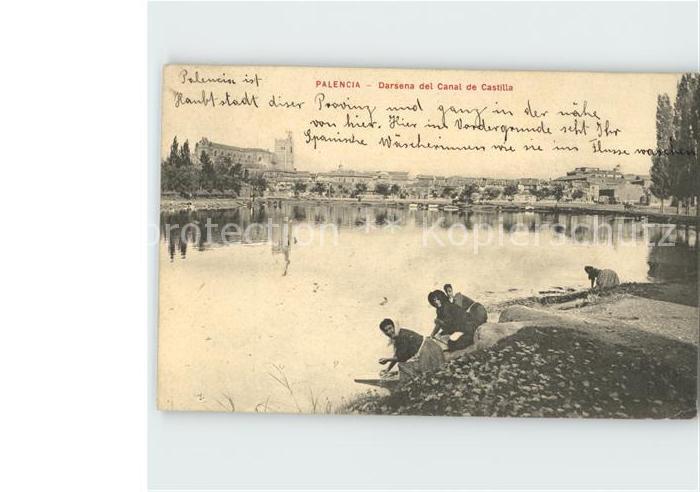 PALENCIA – Darsena del Canal de Castilla
Palencia ist
Hanbtstadt diser Proving und ganz in der nähe
von hier. Hier im Vordergrunde seht Ihr
Spanische Wäscherinnen wie sie im Flusse waschen
copy protection ** Kopierschutz